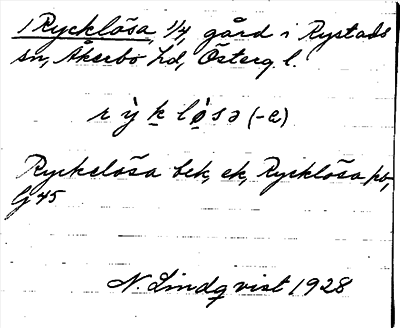 1 Rycklösa, 1/4, gård i Rystads
sn, Åkerbo hd, Österg. l.
rỳk lø̀sə (-a)
Ryckelösa bek, ek, Rycklösa pb,
G 45
N. Lindqvist 1928